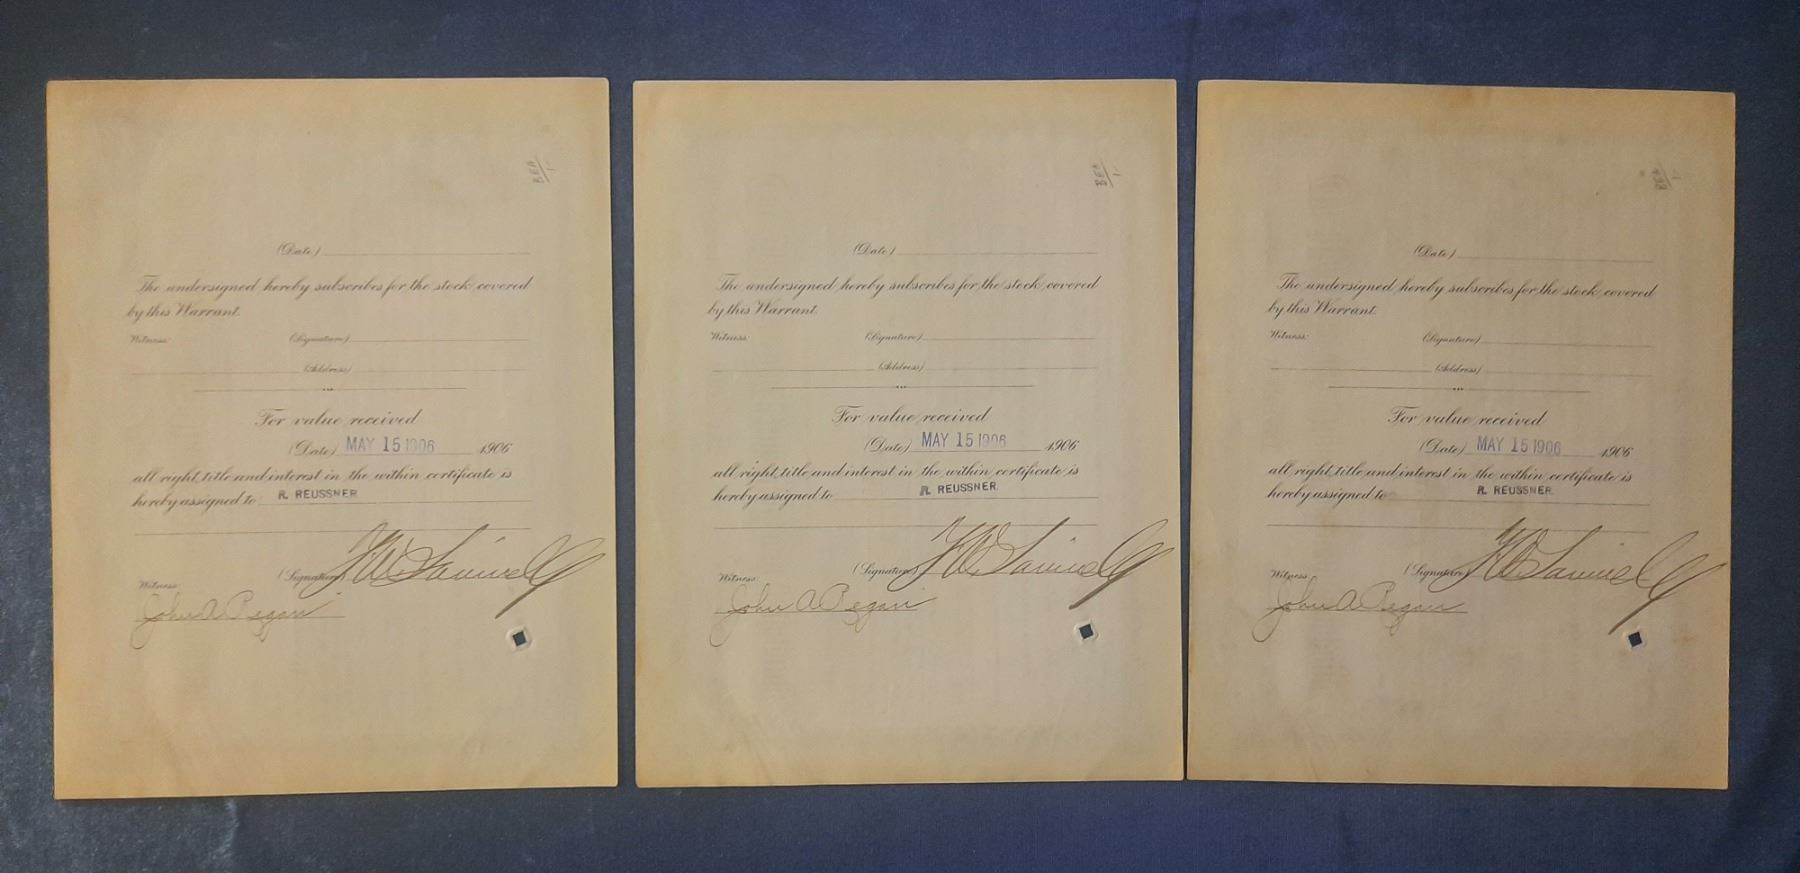 BEA
1-
(Date)
The undersigned hereby subscribes for the stock covered
by this Warrant.
Witness: (Signature)
(Address)
For value received
(Date) MAY 15 1906 1906
all right, title and interest in the within certificate is
hereby assigned to R. REUSSNER
(Signature)
Witness:
John A Regan
BEA
1-
(Date)
The undersigned hereby subscribes for the stock covered
by this Warrant.
Witness: (Signature)
(Address)
For value received
(Date) MAY 15 1906 1906
all right, title and interest in the within certificate is
hereby assigned to R. REUSSNER.
(Signature)
Witness:
John A Regan
BEA
1-
(Date)
The undersigned hereby subscribes for the stock covered
by this Warrant.
Witness: (Signature)
(Address)
For value received
(Date) MAY 15 1906 1906
all right, title and interest in the within certificate is
hereby assigned to R. REUSSNER.
(Signature)
Witness:
John A Regan